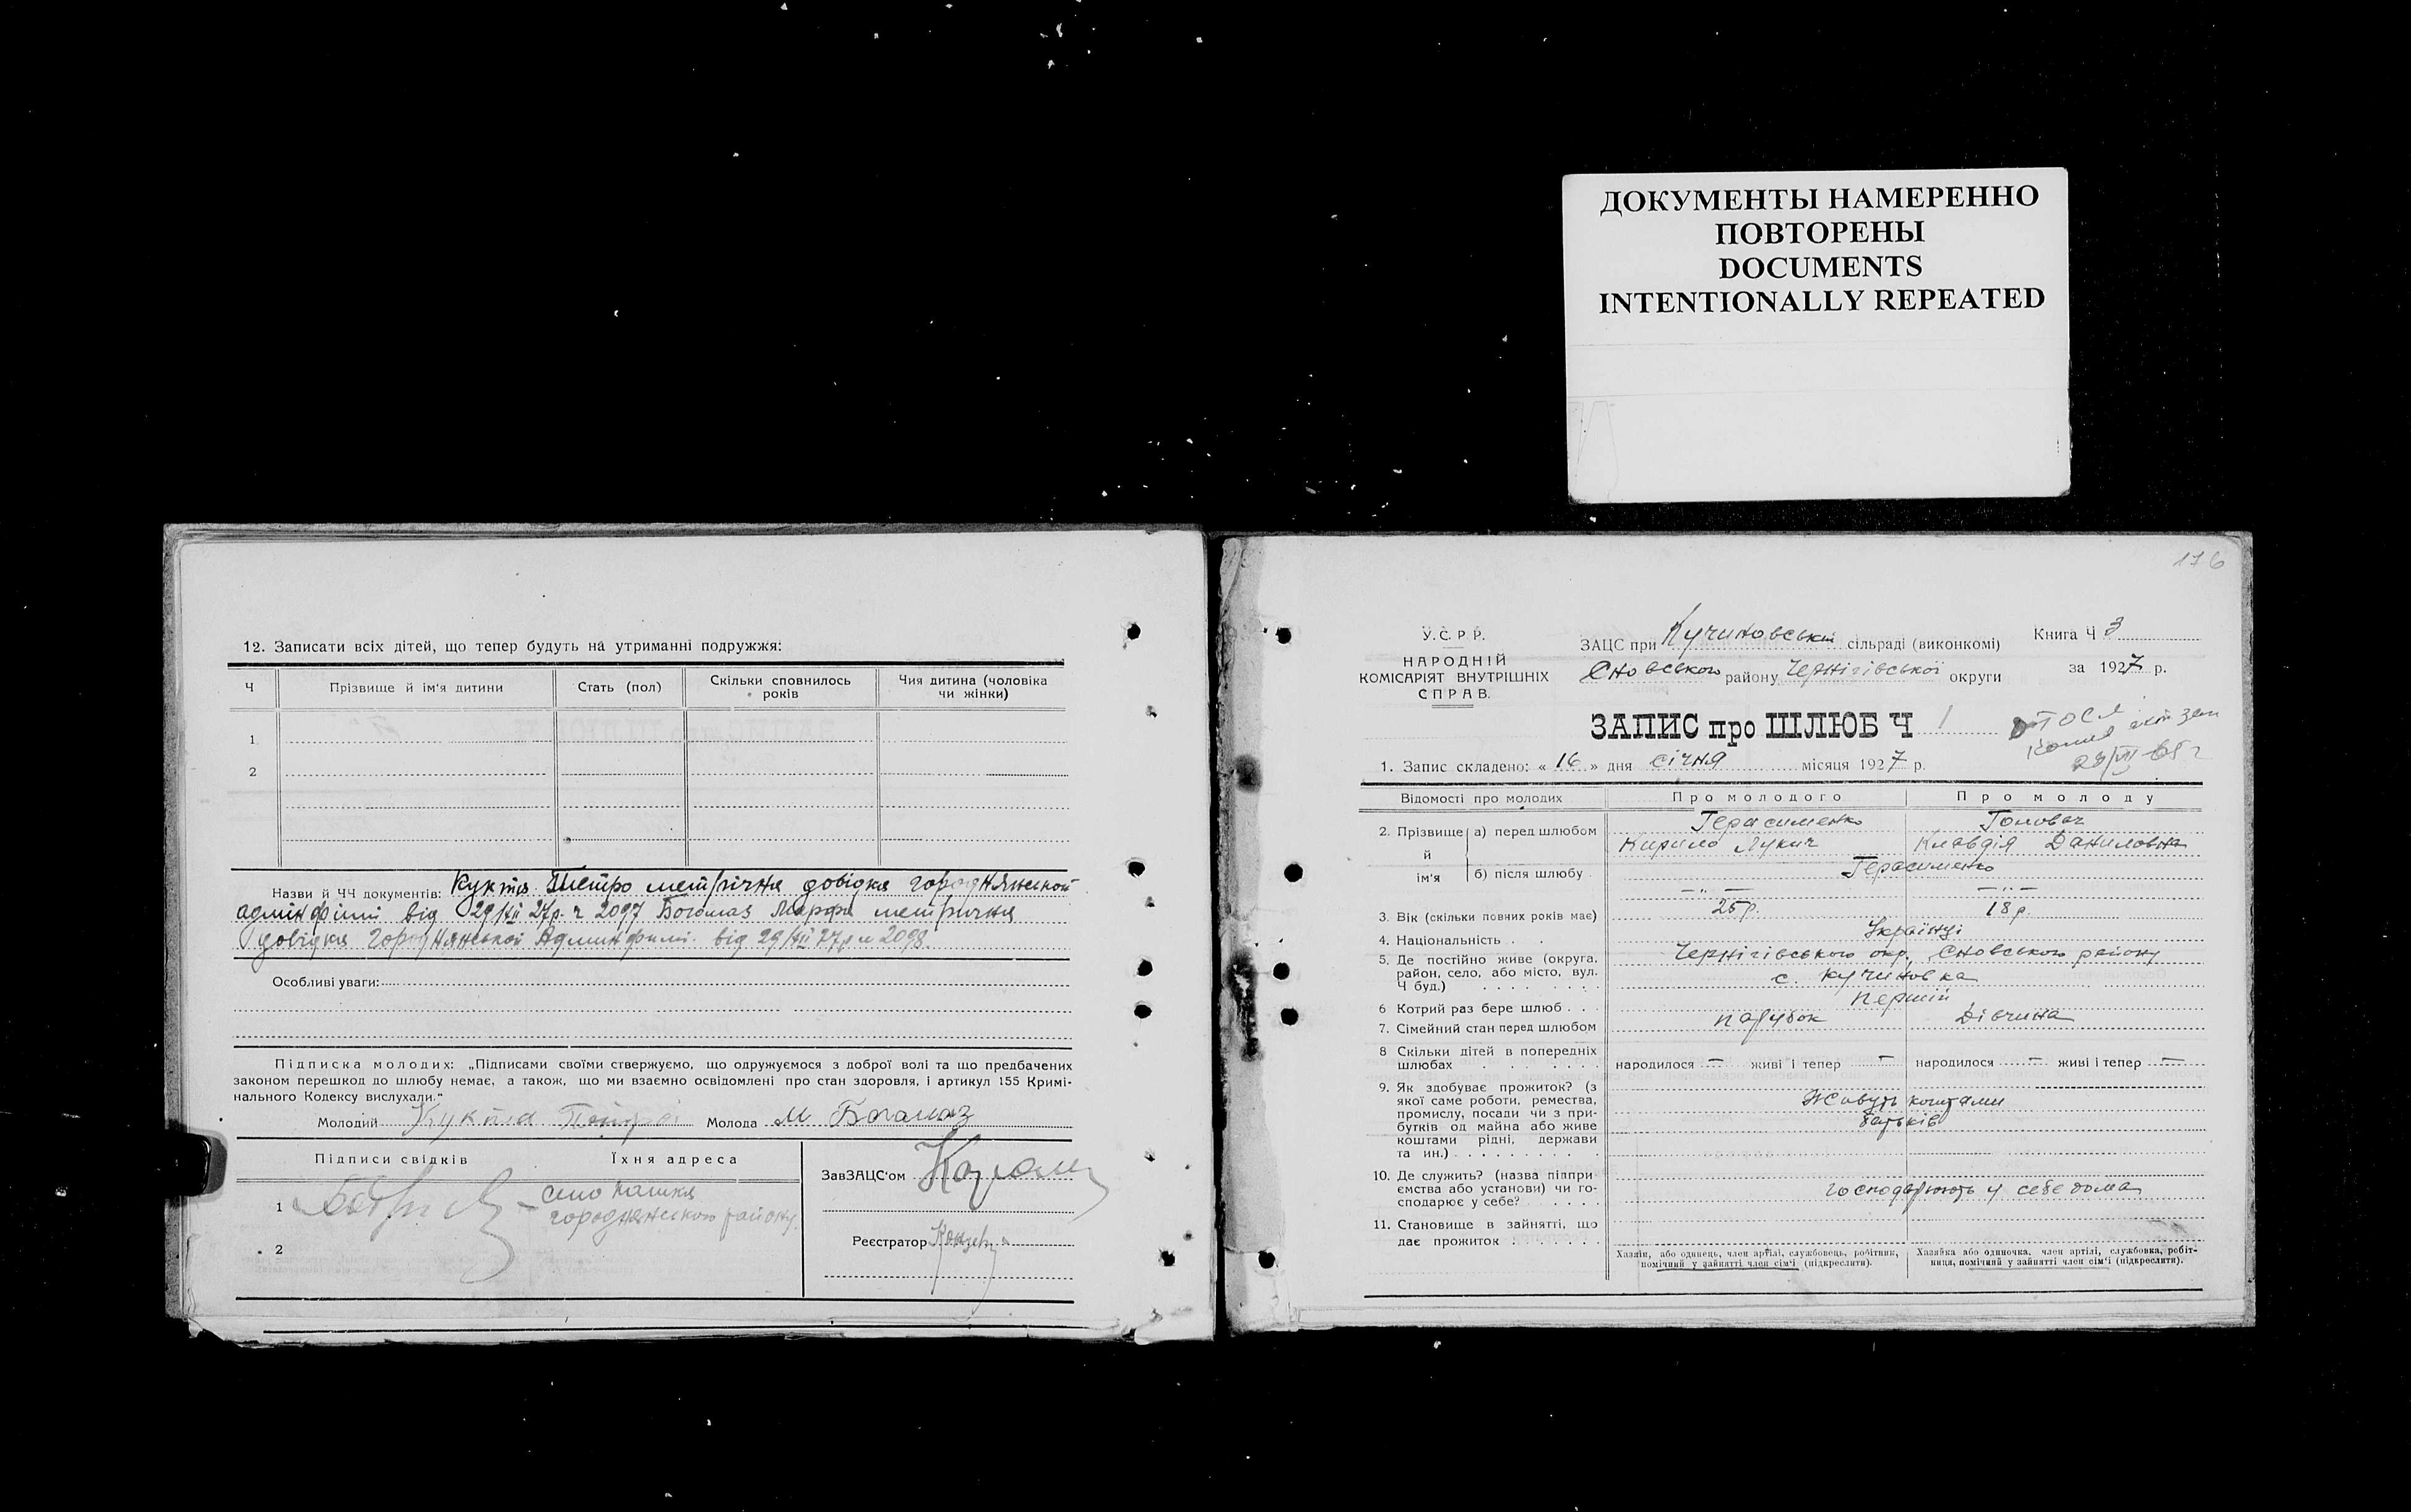 ДОКУМЕНТЫ НАМЕРЕННО
ПОВТОРЕНЫ
DOCUMENTS
INTENTIONALLY REPEATED
12. Записати всіх дітей, що тепер будуть на утриманні подружжя:
Ч Прізвище й ім'я дитини Стать (пол) Скільки сповнилось років Чия дитина (чоловіка чи жінки)
1
2
Назви й ЧЧ документів: Кукта Петро метрічна довідка городнянської
адмінфілії від 29/XII 27р. ч 2097 Богомаз Марфа метрична
довідка Городнянської Админфилі. від 29/XII 27р ч 2098.
Особливі уваги:
Підписка молодих: „Підписами своїми ствержуємо, що одружуємося з доброї волі та що предбачених
законом перешкод до шлюбу немає, а також, що ми взаємно освідомлені про стан здоровля, і артикул 155 Кримі-
нального Кодексу вислухали."
Молодий Кукта Молода М Богомаз
Підписи свідків Їхня адреса
ЗавЗАЦС'ом
1 село
городнянського району
Реєстратор
2
176
У.С.Р.Р.
НАРОДНІЙ
КОМІСАРІЯТ ВНУТРІШНІХ
СПРАВ.
ЗАЦС при Кучиновській сільраді (виконкомі) Книга Ч 3
Сновського району Чернігівської округи за 1927 р.
ЗАПИС про ШЛЮБ Ч 1
1. Запис складено: « 16 » дня січня місяця 1927 р.
Відомості про молодих Про молодого Про молоду
2. Прізвище й ім'я а) перед шлюбом Герасименко Головач
Кирило Лукич Клавдія Даниловна
б) після шлюбу Герасименко
— „ — — „ —
3. Вік (скільки повних років має) 25р. 18р.
4. Національність . . Українці
5. Де постійно живе (округа, Чернігівського окр. Сновського району
район, село, або місто, вул. с. Кучиновка
Ч буд.) . . . . . . .
6 Котрий раз бере шлюб . . . першій
7. Сімейний стан перед шлюбом парубок Дівчина
8 Скільки дітей в попередніх
шлюбах . . . . . . народилося — живі і тепер — народилося — живі і тепер —
9. Як здобуває прожиток? (з
якої саме роботи, ремества, Живуть коштами
промислу, посади чи з при- батьків
бутків од майна або живе
коштами рідні, держави
та ин.) . . . . . . . . .
10. Де служить? (назва підпри-
ємства або установи) чи го- господарюють у себе дома
сподарює у себе? . . . .
11. Становище в зайнятті, що
дає прожиток . . . . . .
Хазяїн, або одинець, член артілі, службовець, робітник,
помічний у зайнятті член сім'ї (підкреслити).
Хазяйка або одиночка, член артілі, службовка, робіт-
ниця, помічний у зайнятті член сім'ї (підкреслити).